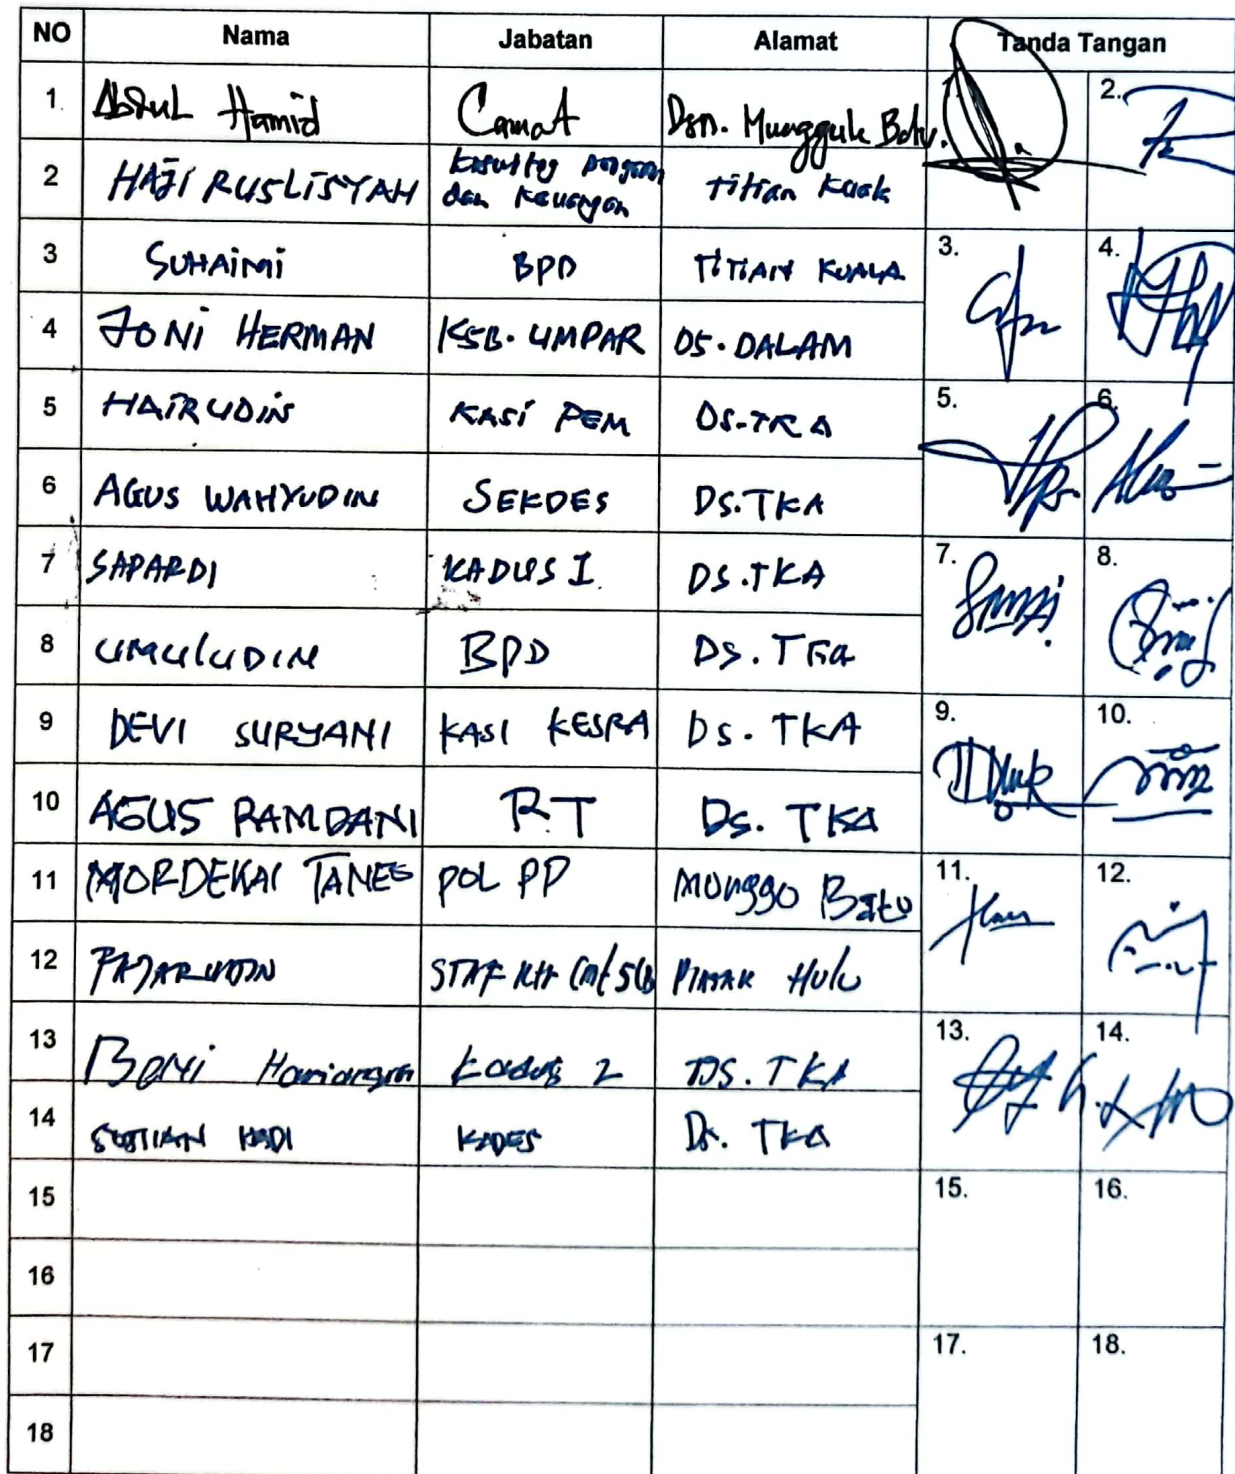 NO Nama Jabatan Alamat Tanda Tangan
1. Abdul Hamid Camat Dsn. Mungguk Batu. 1. 2.
2 HAJI RUSLISYAH dan Keuangan Titian Kuala
3 SUHAIMI BPD TITIAN KUALA 3. 4.
4 JONI HERMAN KSB. UMPAR DS. DALAM
5 HAIRUDIN KASI PEM DS-TKA 5. 6.
6 AGUS WAHYUDIN SEKDES DS.TKA
7 SAPARDI KADUS I DS.TKA 7. 8.
8 UMULUDIN BPD DS. TKA
9 DEVI SURYANI KASI KESRA DS. TKA 9. 10.
10 AGUS RAMDANI RT DS. TKA
11 MORDEKAI TANES POL PP MUNGGO BATU 11. 12.
12 FAJARUDIN STAF HULU
13 BONI Hariansyah Kadus 2 DS. TKA 13. 14.
14 SUTIAN HADI KADES DS. TKA
15 15. 16.
16
17 17. 18.
18